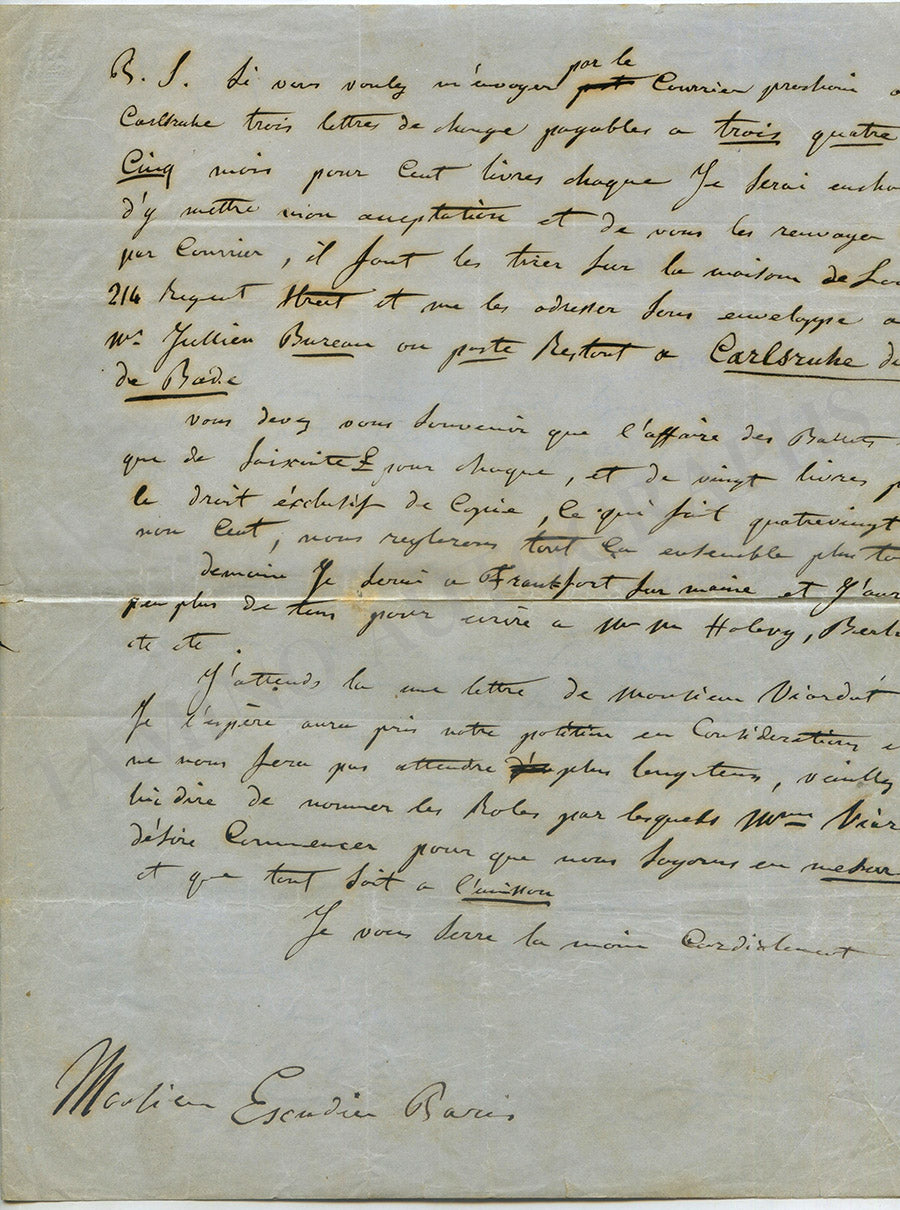 P. S. Si vous voulez m'envoyer par le post Courrier prochain a
Carlsruhe trois lettres de change payables a trois quatre
Cinq mois pour Cent livres chaque Je serai encha
d'y mettre mon acceptation et de vous les renvoyer
par Courrier, il faut les tirer sur la maison de Lon
214 Regent Street et me les adresser sous enveloppe a
Mr Jullien Bureau ou poste Restout a Carlsruhe de
de Bade
vous devez vous souvenir que l'affaire des Ballets
que de soixcite £ pour chaque, et de vingt livres p
le droit éxclusif de Copie, Ce qui fait quatrevingt
non Cent, nous reglerons tout Ca ensemble plus ta
demain Je serai a Frankfort sur maine et J'aur
peu plus de tems pour ecrire a Mr Mr Halevy, Berl
etc etc.
J'attends la une lettre de Monsieur Viardot
Je l'espère aura pris notre petition en Considerations e
ne nous fera pas attendre plus longtems, veuillez
lui dire de nommer les Roles par lesquels Mme Viar
désire Commencer pour que nous soyons en mesur
et que tout soit a l'unisson
Je vous serre la main Cordialement
Monsieur Escudier Paris